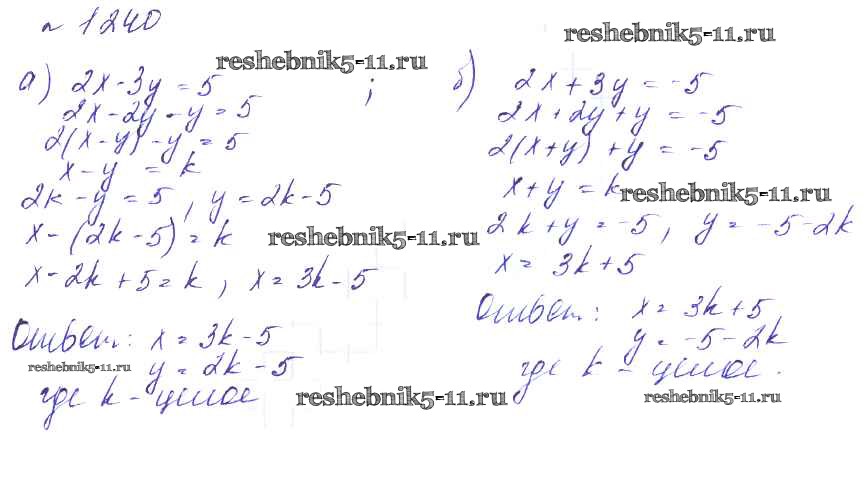 № 1240
reshebnik5-11.ru
reshebnik5-11.ru
а) 2x - 3y = 5 ;
2x - 2y - y = 5
2(x - y) - y = 5
x - y = k
2k - y = 5, y = 2k - 5
x - (2k - 5) = k
reshebnik5-11.ru
x - 2k + 5 = k, x = 3k - 5
Ответ: x = 3k - 5
reshebnik5-11.ru
y = 2k - 5
где k - целое
reshebnik5-11.ru
б) 2x + 3y = -5
2x + 2y + y = -5
2(x + y) + y = -5
x + y = k
reshebnik5-11.ru
2k + y = -5, y = -5 - 2k
x = 3k + 5
Ответ: x = 3k + 5
y = -5 - 2k
где k - целое.
reshebnik5-11.ru